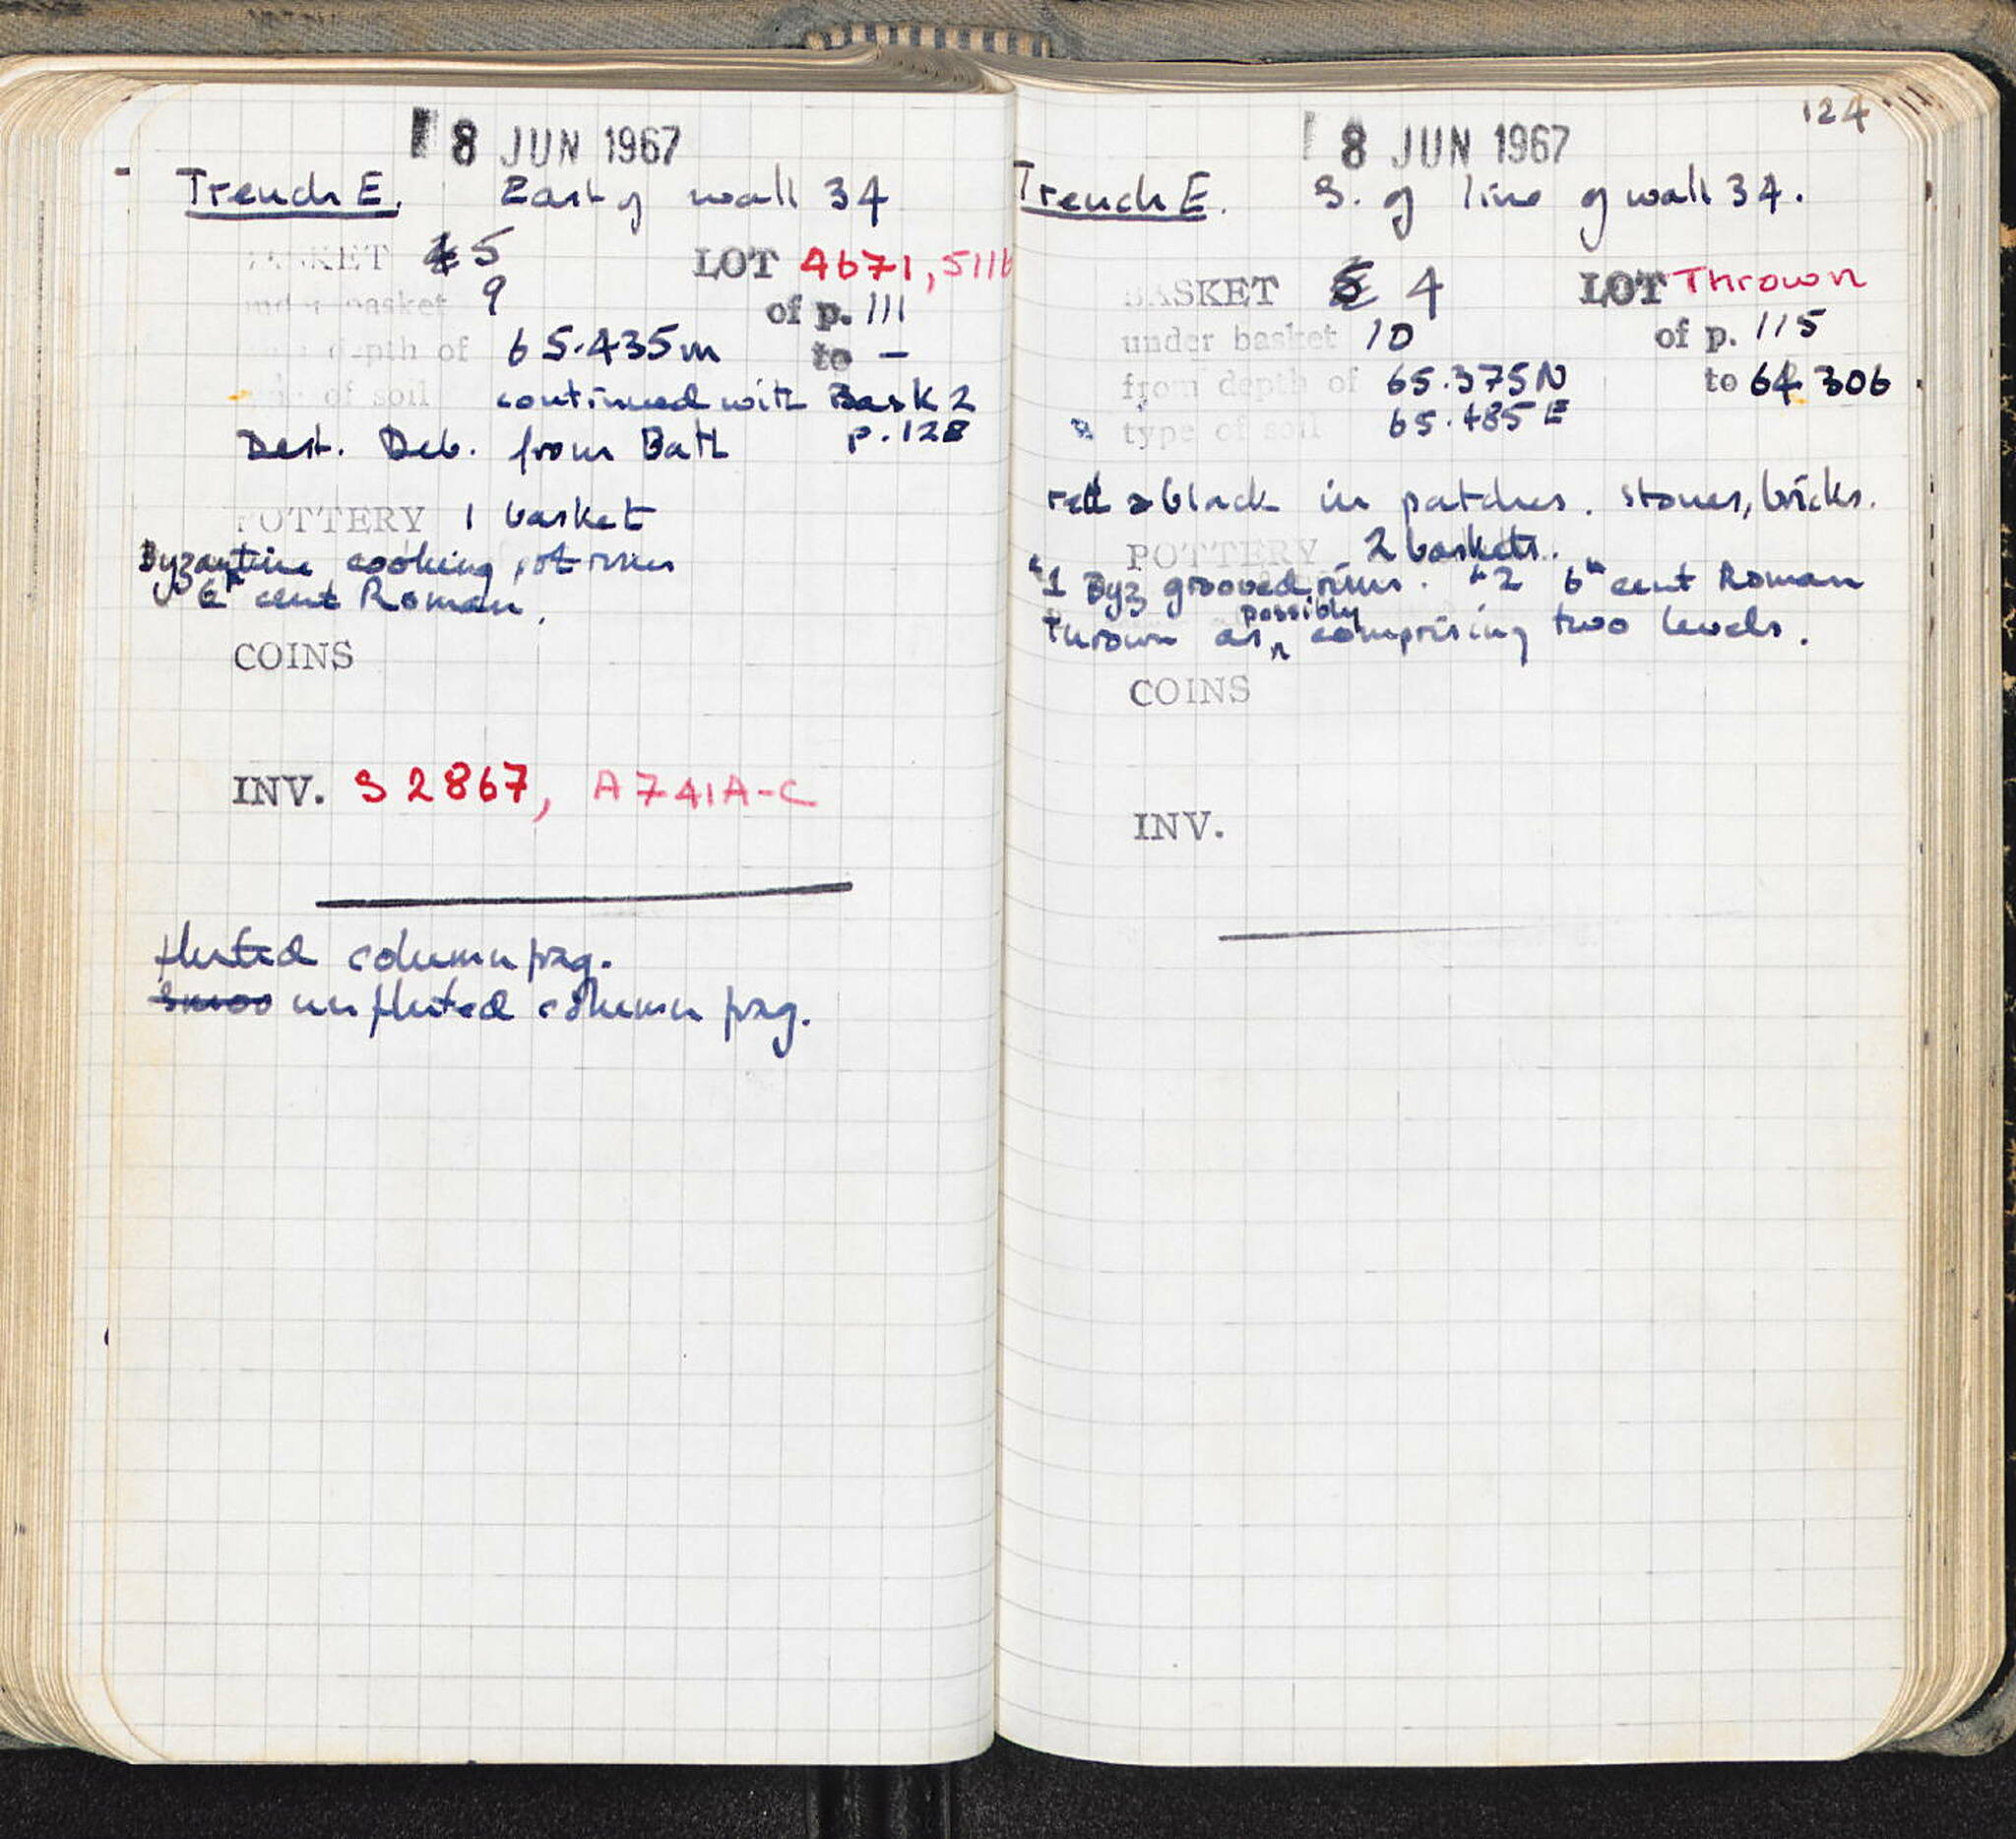 8 JUN 1967
Trench E. East of wall 34
BASKET 5 LOT 4671, 5116
under basket 9 of p. 111
from depth of 65.435m to –
type of soil continued with Bask 2
Dest. Deb. from Bath p. 128
POTTERY 1 basket
Byzantine cooking pot rims
6th cent Roman.
COINS
INV. S 2867, A741A-C
fluted column frag.
smoo unfluted column frag.
124
8 JUN 1967
Trench E. S. of line of wall 34.
BASKET 4 LOT Thrown
under basket 10 of p. 115
from depth of 65.375 N to 64.306
type of soil 65.485 E
red & black in patches. stones, bricks.
POTTERY 2 baskets.
"1 Byz grooved rims. "2 6th cent Roman
possibly
thrown as comprising two levels.
COINS
INV.